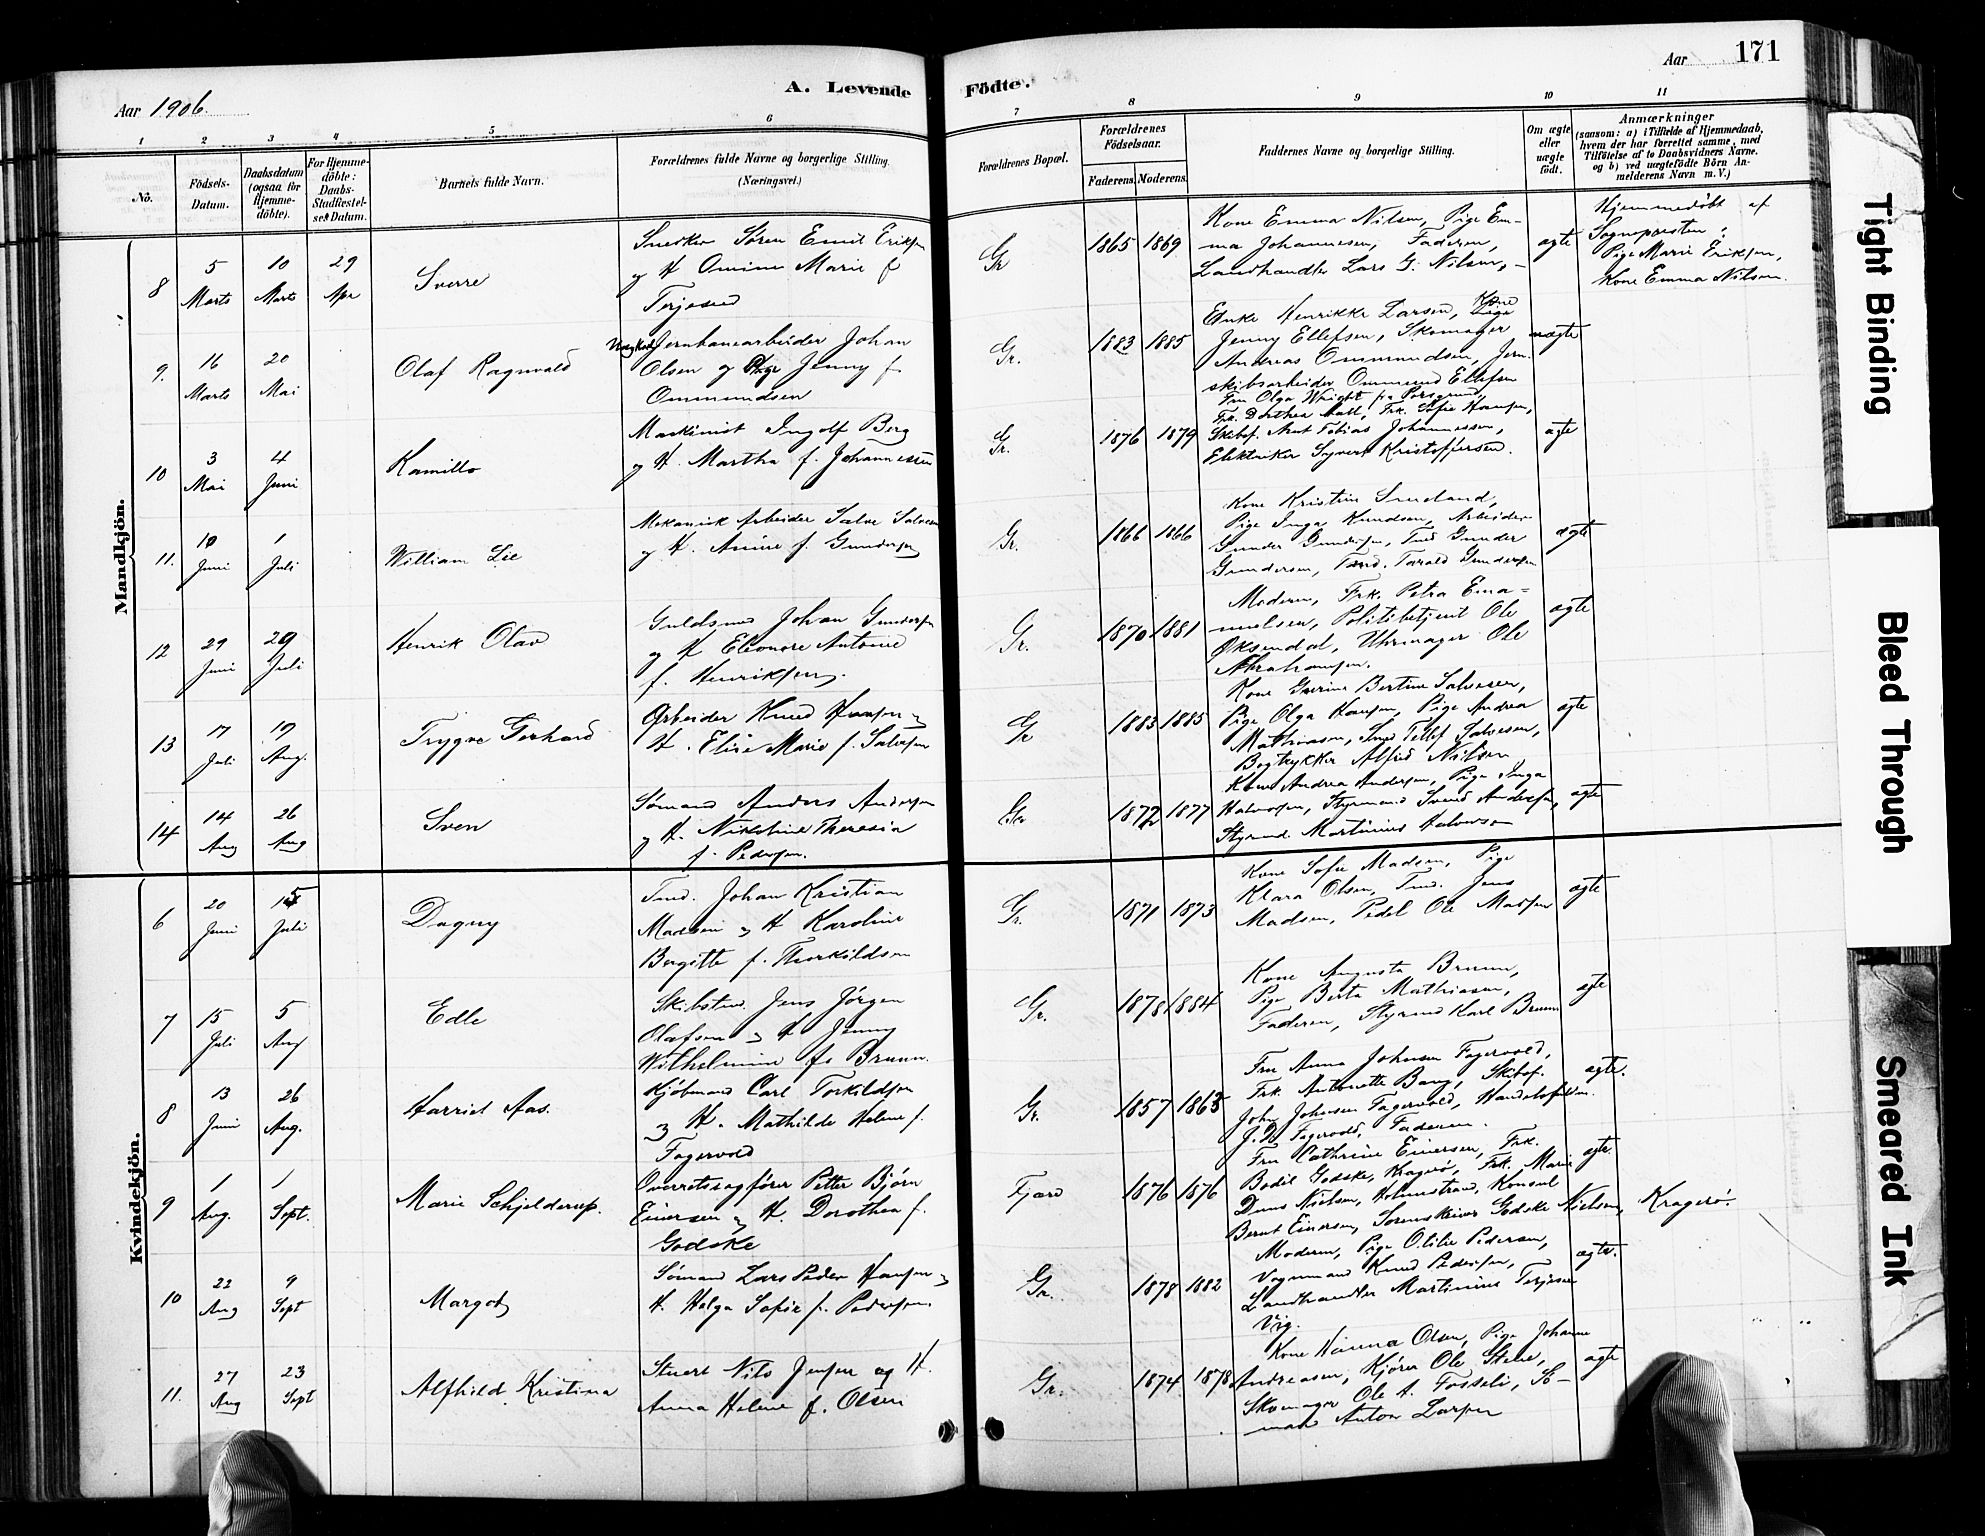 171
Aar
Aar 1906.
A. Levende Födte.
1 2 3 4 5 6 7 8 9 10 11
No.
Födsels-Datum.
Daabsdatum (ogsaa for Hjemme-döbte).
For Hjemme-döbte: Daabs-Stadfæstel-ses Datum.
Barnets fulde Navn.
Forældrenes fulde Navne og borgerlige Stilling.
(Næringsvei.)
Forældrenes Bopæl.
Forældrenes Födselsaar.
Faderens. Moderens.
Faddernes Navne og borgerlige Stilling.
Om ægte eller uægte födt.
Anmærkninger
(saasom: a) i Tilfælde af Hjemmedaab,
hvem der har forrettet samme, med
Tilföielse af to Daabsvidners Navne.
og b) ved uægtefödte Börn An-
melderens Navn m. V.)
Mandkjön.
8 5 Marts 10 Marts 29 Apr Sverre
Snedker Søren Emil Eriksen
og H Omine Marie f
Terjesen
Gr 1865 1869
Kone Emma Nilsen, Pige Em-
ma Johannesen, Faderen,
Landhandler Lars G. Nilsen,
ægte
Hjemmedøbt af
Sognepresten;
Pige Marie Eriksen,
Kone Emma Nilsen.
9. 16 Marts 20 Mai Olaf Ragnvald
Ungkarl Jernbanearbeider Johan
Olsen og Pige Jenny f
Ommundsen
Gr. 1883 1885
Enke Henrikke Larsen, Kone
Jenny Ellefsen, Skomager
Andreas Ommundsen, Jern-
skibsarbeider Ommund Ellefsen
uægte
10 3 Mai 4 Juni Kamillo
Maskinist Ingolf Berg
og H. Martha f. Johannessen
Gr. 1876 1879
Fru Olga Wright fra Porsgrund,
Fru Dorthea, Frk. Sofie Hansen,
Skibsf. Tobias Johannessen,
Elektriker Syvert Kristoffersen.
ægte
11. 10 Juni 1 Juli William Lie
Mekanisk Arbeider Salve Salvesen
og H. Anine f. Gundersen
Gr. 1866 1866
Kone Kristine
Pige Inga Knudsen, Arbeider
Gunder Gundersen, Tmd Gunder
Gundersen, Tmd. Tarald Gundersen
ægte
12 29 Juni 29 Juli Henrik Olav
Guldsmed Johan Gundersen
og H Eleonore Antonie
f. Henriksen.
Gr. 1870 1881
Moderen, Frk. Petra Ema-
nuelsen, Politibetjent Ole
Øksendal, Uhrmager Ole
Abrahamsen.
ægte
13 17 Juli 19 Aug. Trygve Gerhard
Arbeider Knud Hansen og
H. Elise Marie f. Salvesen
Gr 1883 1885
Kone Gurine Bertine Salvesen,
Pige Olga Hansen, Pige Andrea
Mathiasen, Tellef Salvesen,
Bogtrykker Alfred Nilsen
ægte
14 14 Aug 26 Aug Sven
Sømand Anders Andersen
og H. Nikoline Theresia
f. Pedersen.
Gr 1872 1877
Kone Andrea Andersen, Pige Inga
Halvorsen, Styrmand Svend Andersen,
Styrmd. Martinius Halvorsen
ægte
Kvindekjön.
6 20 Juni 15 Juli Dagny
Tmd. Johan Kristian
Madsen og H Karoline
Bergitte f. Thorkildsen
Gr. 1871 1873
Kone Sofie Madsen, Pige
Klara Olsen, Tmd. Jens
Madsen, Pedel Ole Madsen
ægte
7 15 Juli 5 Aug Edle
Skibstmd. Jens Jørgen
Olafsen og H Jenny
Wilhelmine f. Bruun.
Gr. 1878 1884
Kone Augusta Bruun,
Pige Berta Mathiasen,
Faderen, Styrmd Karl Bruun
ægte
8 13 Juni 26 Aug. Harriet Aas.
Kjøbmand Carl Torkildsen
og H. Mathilde Helene f.
Fagervold
Gr. 1857 1863
Fru Anna Johnsen Fagervold,
Frk. Antonette Bang, Skibsf.
John Johnsen Fagervold,
J. D. Fagervold, Faderen.
ægte.
9 1 Aug. 1 Sept. Marie Schjelderup.
Overretssagfører Petter Bjørn
Einersen og H. Dorothea f.
Godske
Fjære 1876 1876
Fru Cathrine Einersen, Frk.
Bodil Godske, Kragerø, Frk. Marie
Nielsen, Holmestrand, Konsul
Bernt Einersen, Sorenskriver Godske Nielsen, Kragerø.
ægte
10 22 Aug 9 Sept Margot
Sømand Lars Peder Hansen og
H. Helga Sofie f. Pedersen.
Gr. 1878 1882
Moderen, Pige Otilie Pedersen,
Vognmand Knud Pedersen,
Landhandler Martinius Terjesen
Vig.
ægte.
11. 27 Aug 23 Sept Alfhild Kristina
Stuert Nils Jensen og H.
Anna Helene f. Olsen
Gr. 1874 1878
Kone Hanna Olsen, Pige Johanne
Andreasen, Kjører Ole
Skomager Ole A. Fosseli, Sø-
mand Anton Larsen
ægte
Tight Binding
Bleed Through
Smeared Ink